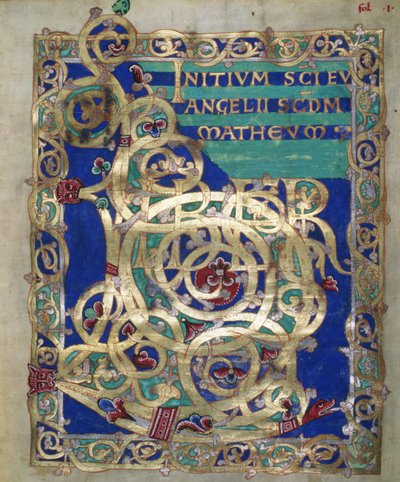 fol. 1.
INITIVM SCI EV
ANGELII SCDM
MATHEVM
LIBER